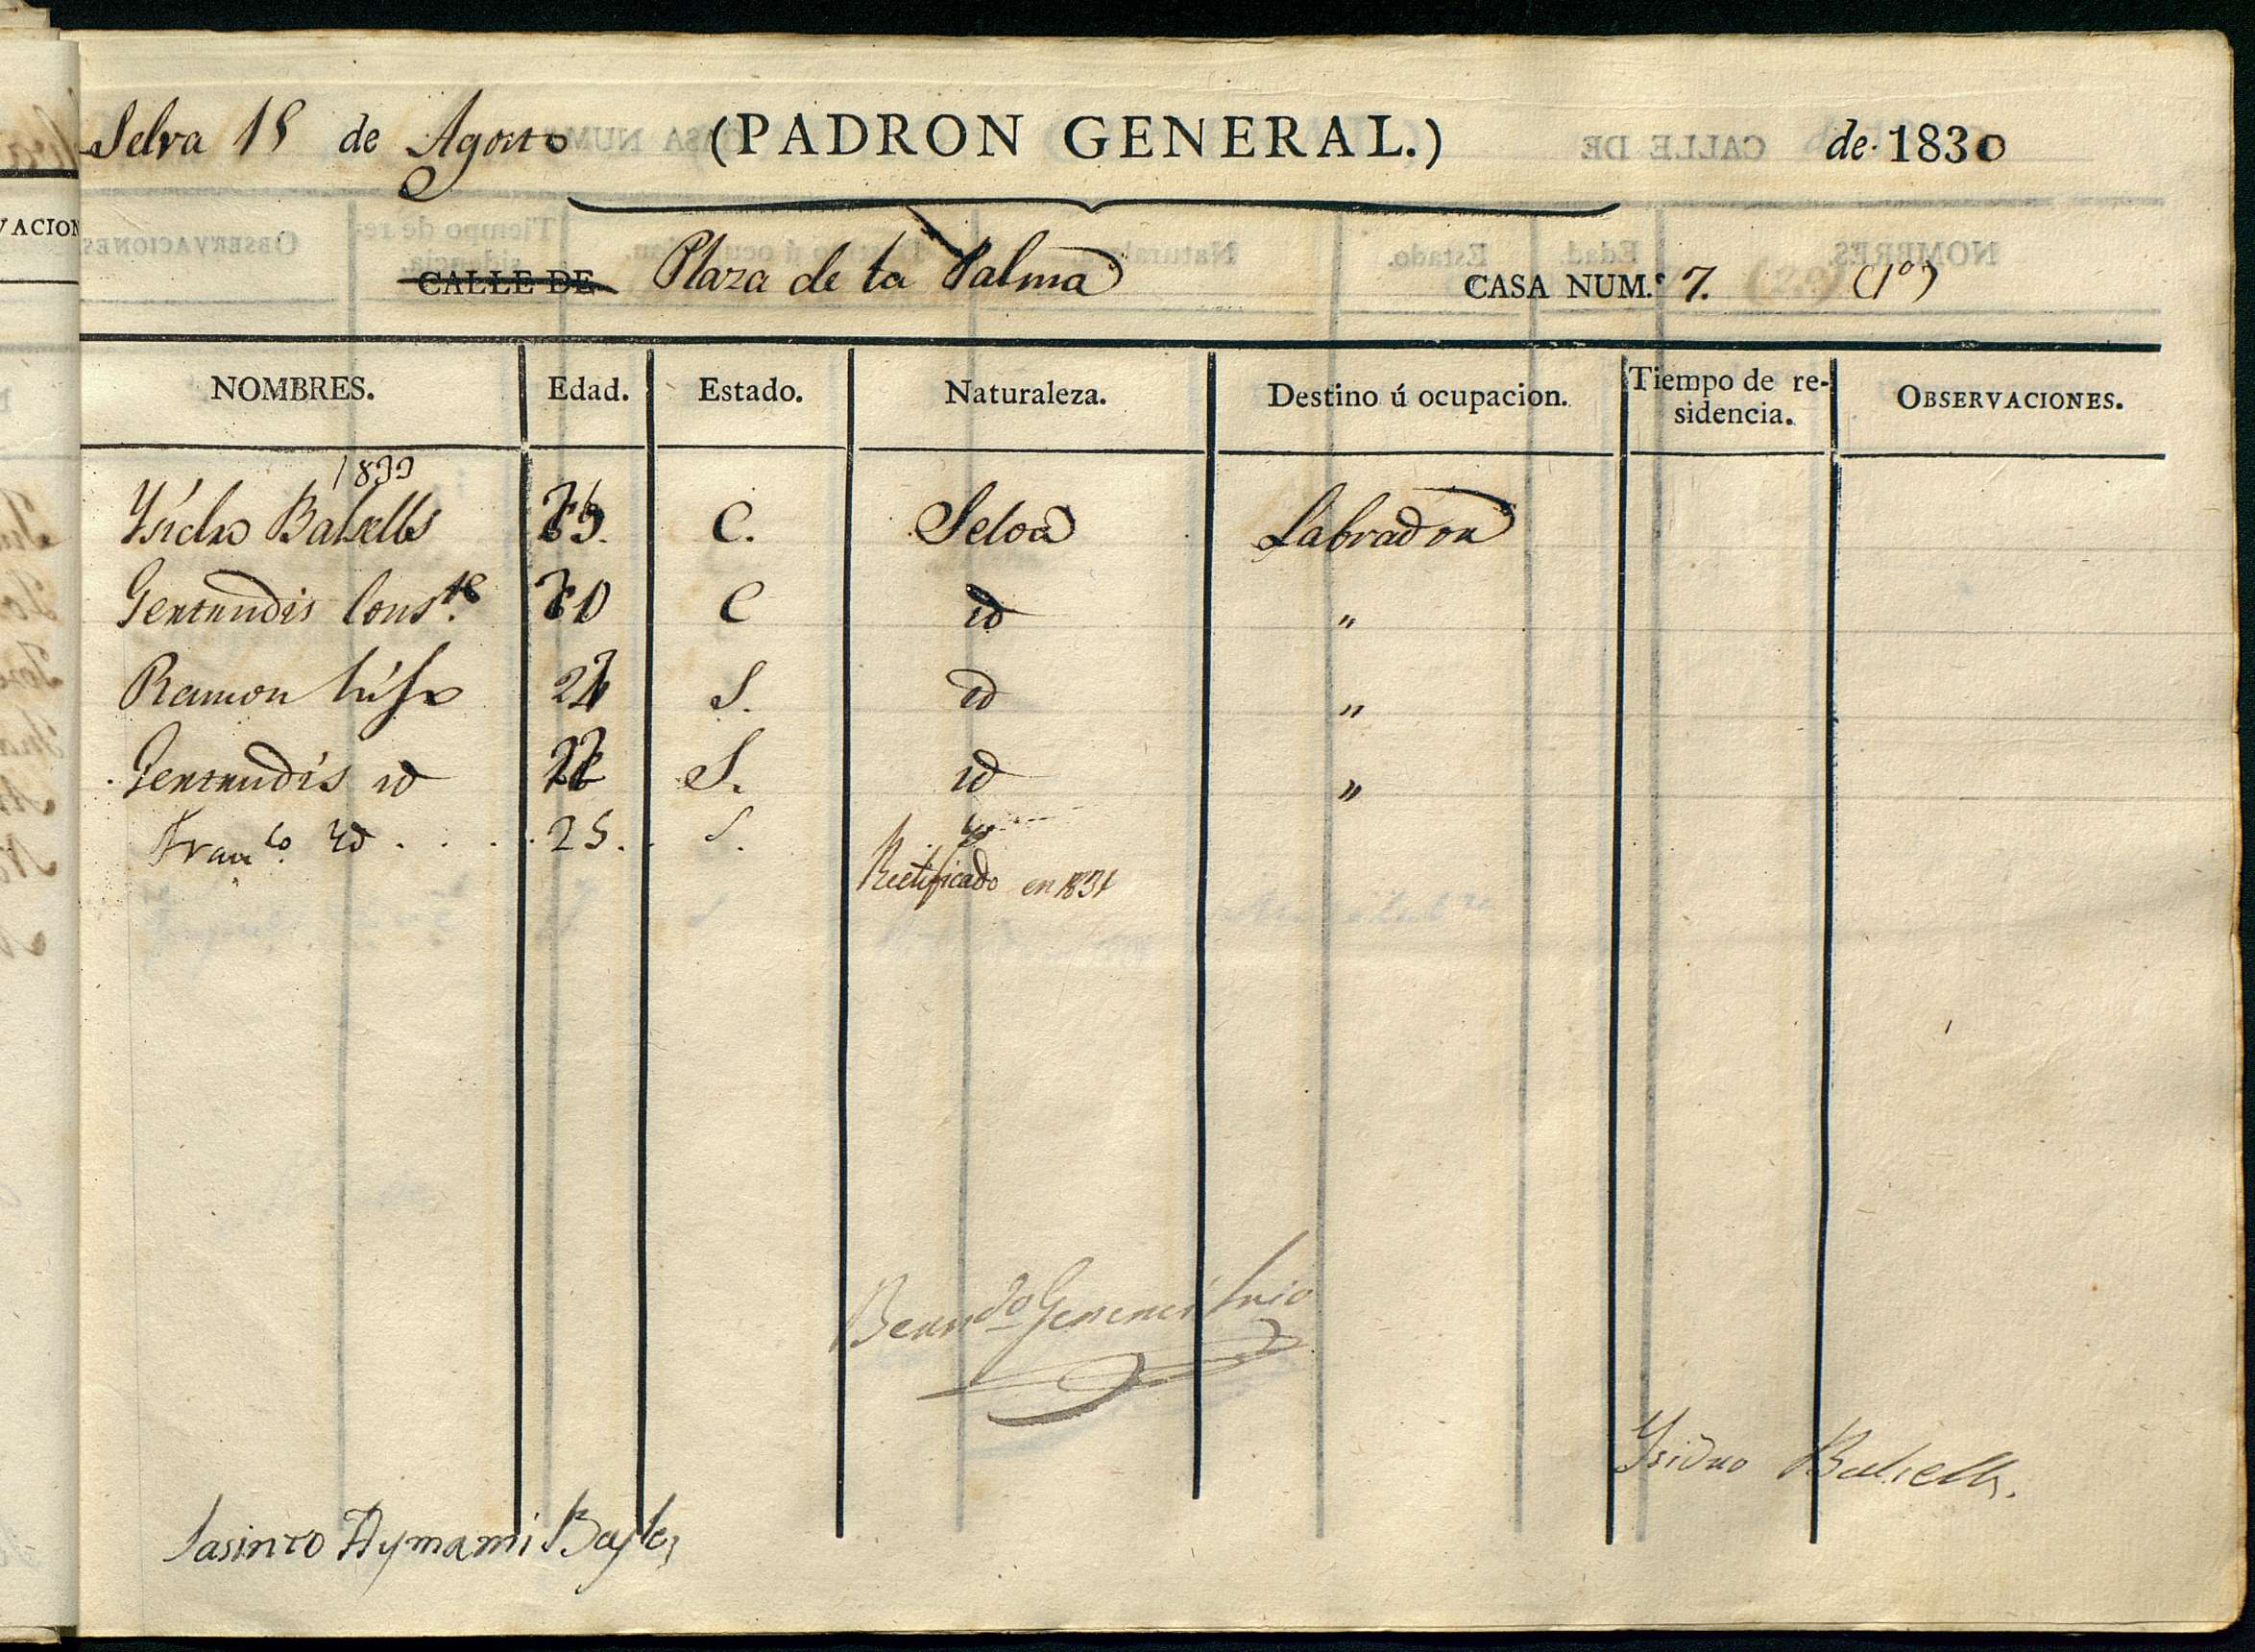 Selva 18 de Agosto (PADRON GENERAL.) de 1830
CALLE DE Plaza de la Palma CASA NUM.º 7. (1º)
NOMBRES. Edad. Estado. Naturaleza. Destino ú ocupacion. Tiempo de re-sidencia. OBSERVACIONES.
1833
Ysidro Balsells C. Selva Labrador
Gertrudis Cons.te C id "
Ramon hijo S. id "
Gertrudis id S. id "
Fran.co Yd . . . 25. S. Yd
Rectificado en 1831
Ysidro Balsells.
Jasinto Aymami Bayle
VACION